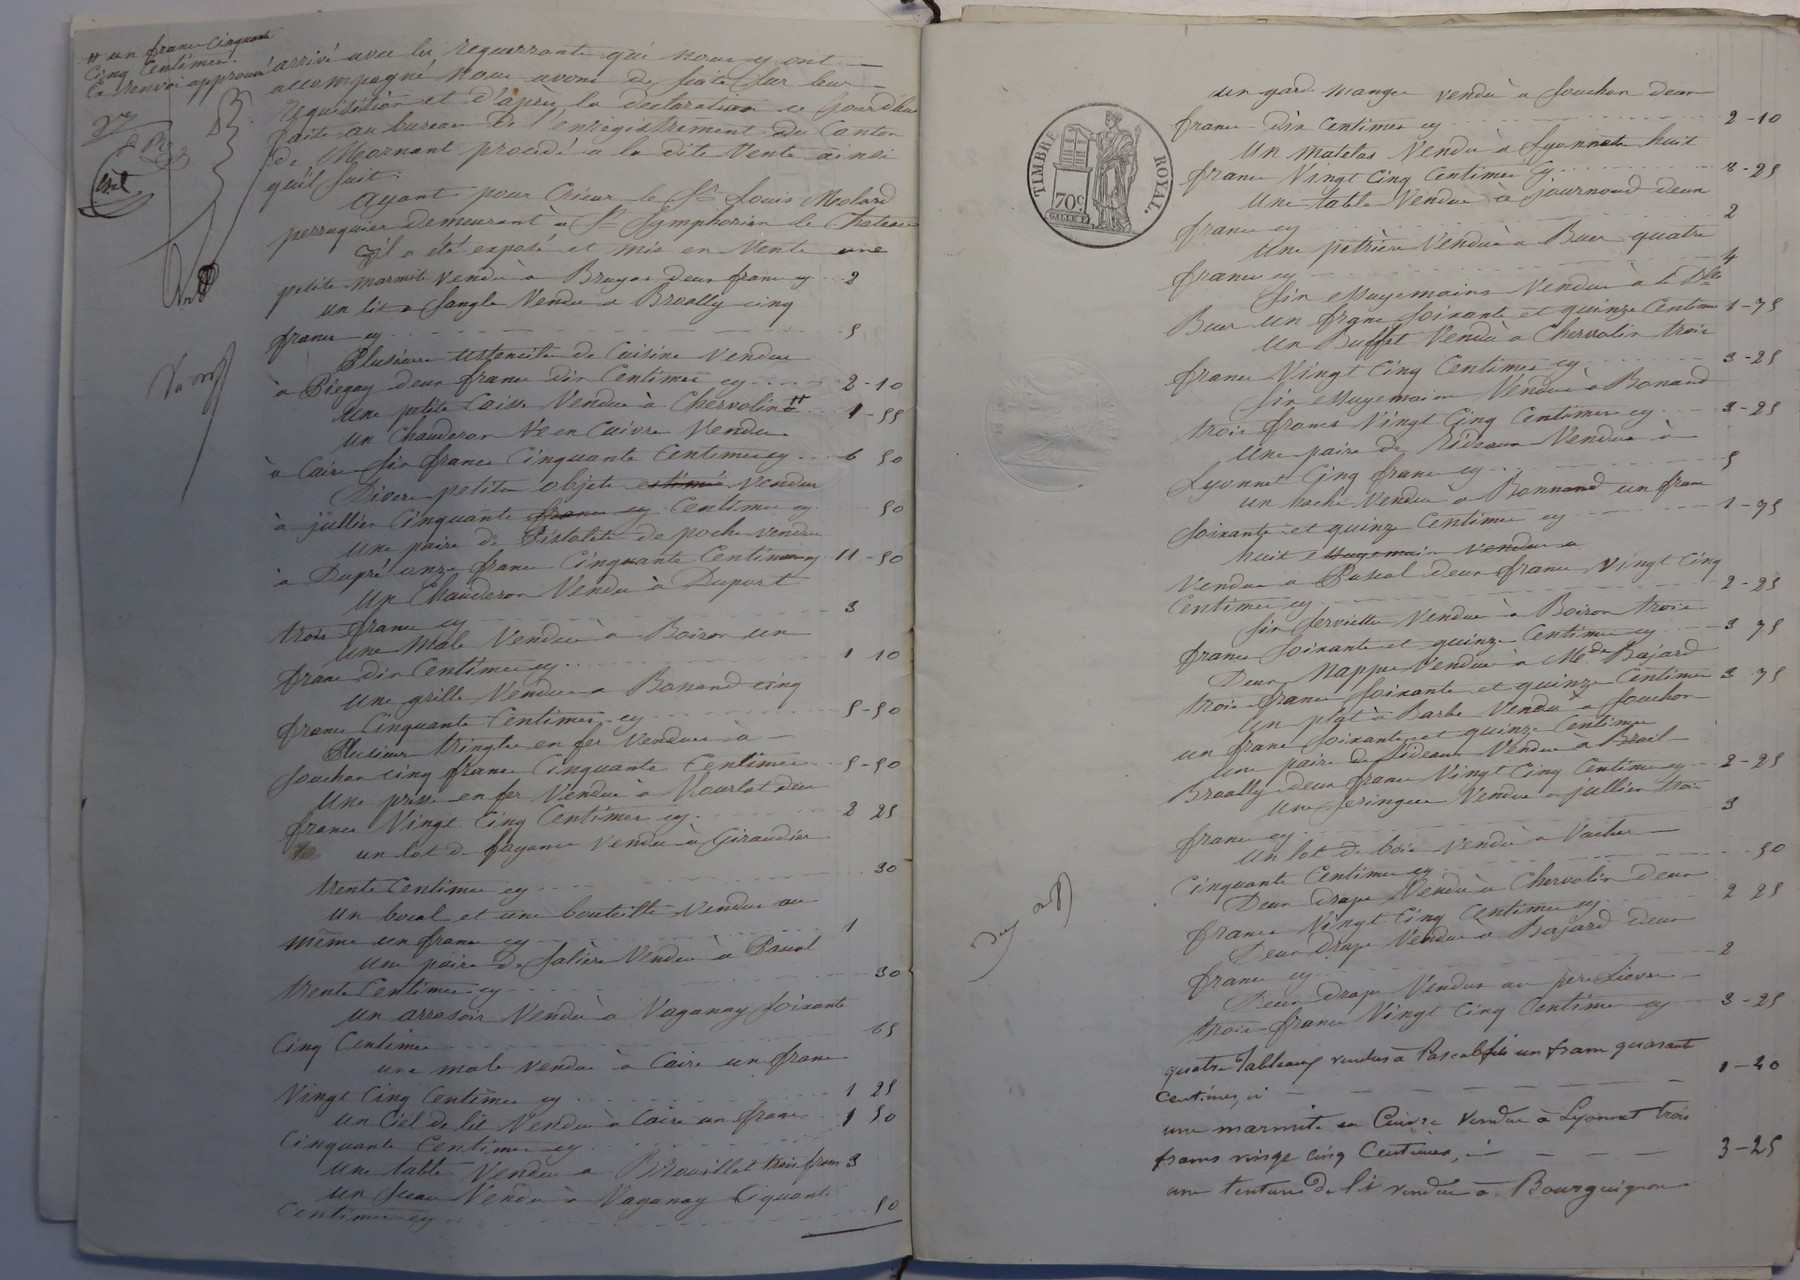 # un franc cinquante
cinq centimes
le renvoi approuvé
arrivé avec les requerrants qui nous y ont
accompagné, nous avons de suite sur leur
requisition et d'après la declaration ce jourd'hui
faite au bureau de l'enregistrement du Canton
de Mornant procedé a la dite Vente ainsi
qu'il suit:
ayant pour Crieur le Sr Louis Molard
perruquier demeurant à St Symphorien le Chateau
Il a été exposé et mis en Vente une
petite marmite Vendue a Bruyas deux francs cy 2
un lit a sangle Vendu a Broally cinq
francs cy 5
Plusieurs ustenciles de Cuisine Vendues
à Piegay deux francs dix Centimes cy 2-10
une petite Caisse Vendue à Chervolin # 1-55
un Chauderon en Cuivre Vendu
à Caire six francs Cinquante Centimes cy 6 50
Divers petits objets estimés Vendus
à jullien Cinquante francs cy Centimes cy 50
une paire de Pistolets de poche Vendue
à Dupré onze francs Cinquante Centimes cy 11-50
un Chauderon Vendu à Duport
trois francs cy 3
une Male Vendue à Boiron un
franc dix Centimes cy 1 10
une grille Vendue a Bonand cinq
francs Cinquante Centimes cy 5-50
Plusieurs tringles en fer Vendues à
Souchon cinq francs Cinquante Centimes 5-50
une presse en fer Vendue à Vourlat deux
francs Vingt Cinq Centimes cy 2 25
un lot de fayance Vendu à Giraudier
trente Centimes cy 30
un bocal et une bouteille Vendus au
même un franc cy 1
une paire de Salière Vendue à Pascal
trente Centimes cy 30
un arrosoir Vendu à Vaganay soixante
Cinq Centimes 65
une male Vendue à Caire un franc
Vingt Cinq Centimes cy 1 25
un Ciel de lit Vendu à Caire un franc 1 50
Cinquante Centimes cy
une table Vendue a Brouillet trois francs 3
un Sceau Vendu à Vaganay Ciquante
Centimes cy 50
TIMBRE ROYAL.
70c.
un garde manger vendu a Souchon deux
francs dix Centimes cy 2-10
un matelas Vendu à Lyonnet huit
francs Vingt Cinq Centimes cy 8-25
une table Vendue à journoud deux
francs cy 2
une petrière Vendue à Buer quatre
francs cy 4
Six essuyemains Vendus à le dit
Buer un franc soixante et quinze Centimes 1-75
un Buffet Vendu à Chervolin trois
francs Vingt Cinq Centimes cy 3-25
Six essuyemain Vendus à Bonand
trois francs Vingt Cinq Centimes cy 3-25
une paire de Rideaux Vendue à
Lyonnet Cinq francs cy 5
un hache Vendu à Bonnand un franc
soixante et quinze Centimes cy 1-75
huit essuyemain Vendus a
Vendus a Pascal deux francs Vingt Cinq
Centimes cy 2-25
Six Serviettes Vendues à Boiron trois
francs soixante et quinze Centimes cy 3 75
Deux Nappes Vendues à Mde Bajard
trois francs soixante et quinze Centimes 3 75
un plat à Barbe Vendu à Souchon
un franc soixante et quinze Centimes
une paire de Rideaux Vendue à
Broally deux francs Vingt Cinq Centimes cy 2-25
une Seringue Vendue a jullien trois
francs cy 3
un lot de bois Vendu à Vacher
Cinquante Centimes cy 50
Deux draps Vendus à Chervolin deux
francs Vingt Cinq Centimes cy 2 25
Deux draps Vendus a Bajard deux
francs cy 2
Deux draps Vendus au pere Lievre
trois francs Vingt Cinq Centimes cy 3-25
quatre Tableaux vendus à Pascal fils un franc quarante
centimes, ci 1-40
une marmite en Cuivre vendue à Lyonnet trois
francs vingt cinq Centimes, ci 3-25
une tenture de lit vendue à Bourguignon